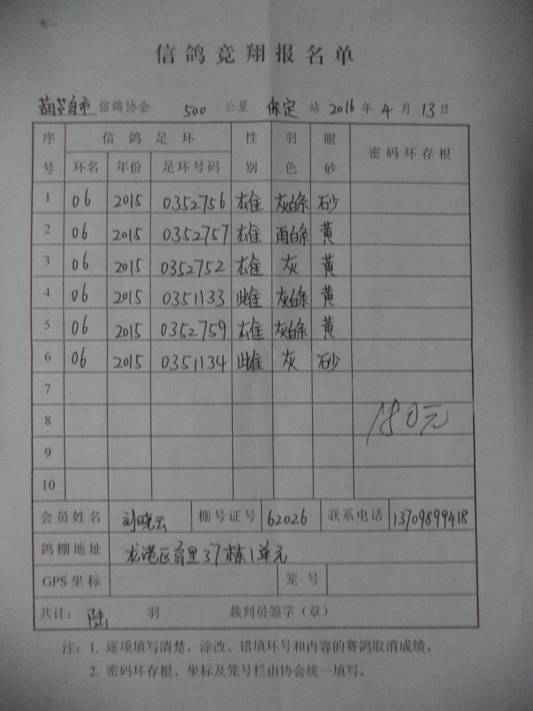 表一
信鸽竞翔报名单
葫芦岛市 信鸽协会 500 公里 保定 站 2016 年 4 月 13 日
序号 信鸽足环 性别 羽色 眼砂 密码环存根
环名 年份 足环号码
1 06 2015 0352756 雄 灰白条 砂
2 06 2015 0352757 雄 雨白条 黄
3 06 2015 0352752 雄 灰 黄
4 06 2015 0351133 雌 灰白条 黄
5 06 2015 0352759 雄 灰白条 黄
6 06 2015 0351134 雌 灰 砂
7
8 180元
9
10
会员姓名 刘晓云 棚号证号 62026 联系电话 13709899418
鸽棚地址 龙港区 里37栋1单元
GPS坐标 笼号
共计: 陆 羽 裁判员签字(章)
注:1. 逐项填写清楚,涂改、错填环号和内容的赛鸽取消成绩。
2. 密码环存根、坐标及笼号栏由协会统一填写。